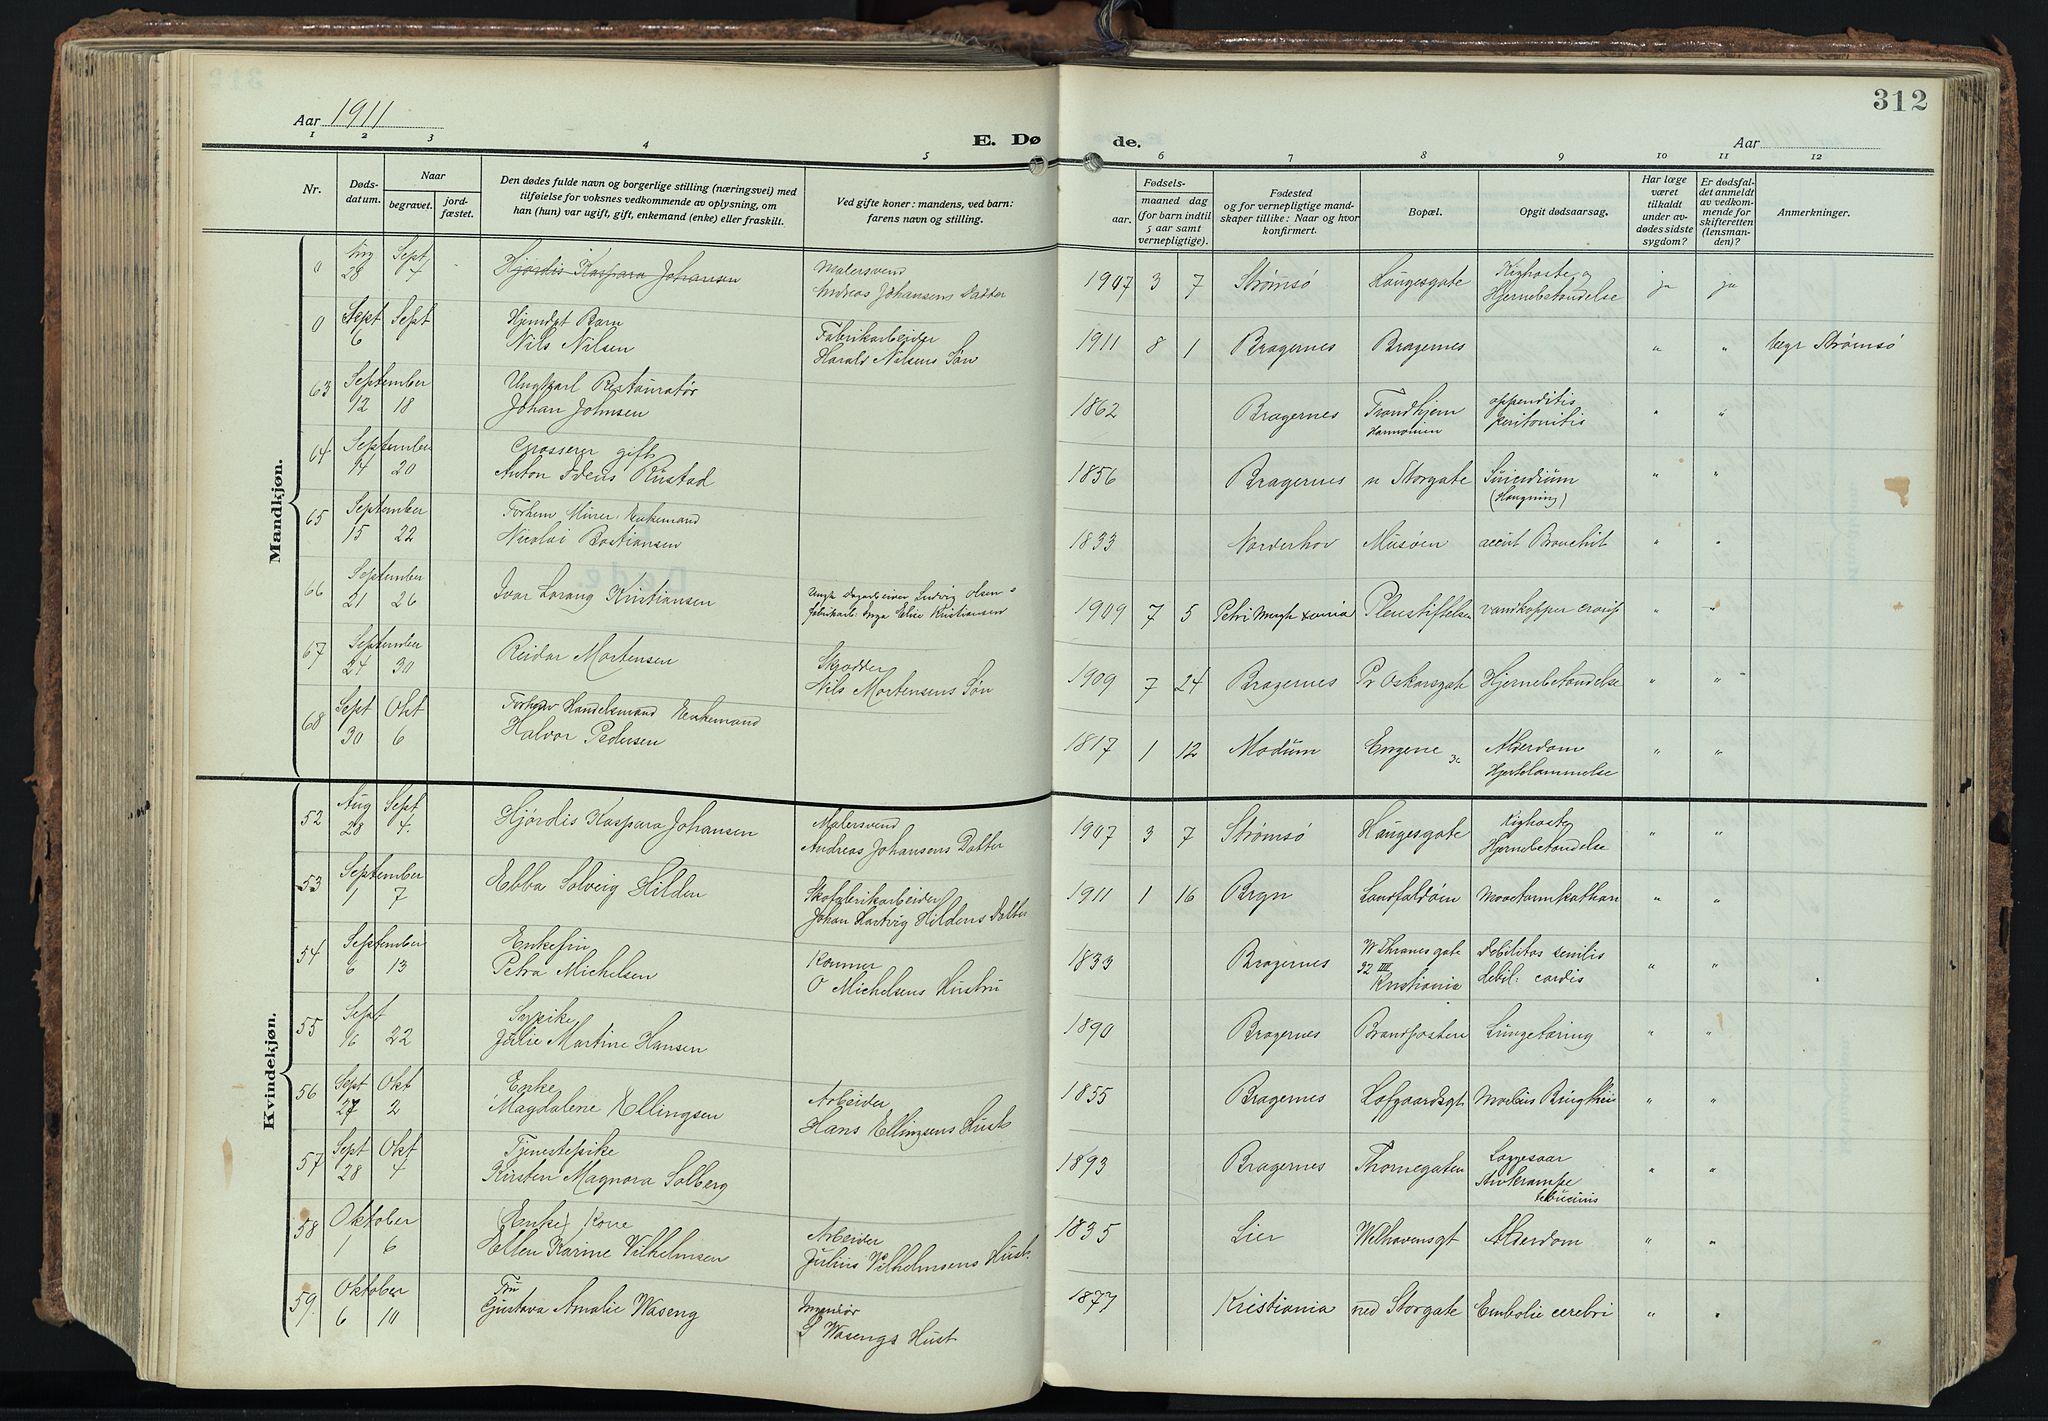 312
Aar 1911
E. Døde.
Aar
1 2 3 4 5 6 7 8 9 10 11 12
Nr.
Dødsdatum.
Naar
begravet.
jordfæstet.
Den dødes fulde navn og borgerlige stilling (næringsvei) med
tilføielse for voksnes vedkommende av oplysning, om
han (hun) var ugift, gift, enkemand (enke) eller fraskilt.
Ved gifte koner: mandens, ved barn:
farens navn og stilling.
Fødsels-
aar. maaned dag
(for barn indtil
5 aar samt
vernepligtige).
Fødested
og for vernepligtige mand-
skaper tillike: Naar og hvor
konfirmert.
Bopæl.
Opgit dødsaarsag.
Har læge
været
tilkaldt
under av-
dødes sidste
sygdom?
Er dødsfal-
det anmeldt
av vedkom-
mende for
skifteretten
(lensman-
den)?
Anmerkninger.
Mandkjøn.
0 Aug 28 Sept 4 Hjørdis Kaspara Johansen Malersvend
Andreas Johansens Datter 1907 3 7 Strømsø Haugesgate Kighoste og
Hjernebetændelse ja ja
0 Sept 6 Sept Hjemdøpt Barn
Nils Nilsen Fabrikarbeider
Harald Nilsens Søn 1911 8 1 Bragernes Bragernes " " begr Strømsø
63 September 12 18 Ungkarl Restauratør
Johan Johnsen 1862 Bragernes Trondhjem
Harmonien appenditis
peritonitis " "
64 September 14 20 Grosserer gift
Anton Idens Rustad 1856 Bragernes n Storgate Suicidium
(Hængning) " "
65 September 15 22 Forhem Murer Enkemand
Nicolai Bastiansen 1833 Norderhov Musøen accut Bronchit " "
66 September 21 26 Ivar Lorang Kristiansen Ungk Dagarbeider Ludvig Olsen o
fabrikarb: Inga Elise Kristiansen 1909 7 5 Petri Mngh Xania Plenstiftelse vandkopper croup " "
67 September 24 30 Reidar Mortensen Skrædder
Nils Mortensens Søn 1909 7 24 Bragernes Pr Oskarsgate Hjernebetændelse " "
68 Sept 30 Okt 6 Forhenv Handelsmand Enkemand
Halvor Pedersen 1817 1 12 Modum Engene 3c Alderdom
Hjertelammelse " "
Kvindekjøn.
52 Aug 28 Sept 4. Hjørdis Kaspara Johansen Malersvend
Andreas Johansens Datter 1907 3 7 Strømsø Haugesgate Kighoste
Hjernebetændelse " "
53 September 1 7 Ebba Solveig Hilden Skofabrikarbeider
Johan Hartvig Hildens Datter 1911 1 16 Brgn Landfaldøen Mavetarmkathar " "
54 September 6 13 Enkefru
Petra Michelsen
O Michelsens Hustru 1833 Bragernes W Thranesgate
32 IIII
Kristiania Debilitas senilis
debil: cordis " "
55 Sept 16 22 Sypike
Julie Martine Hansen 1890 Bragernes Brandposten Lungetæring " "
56 Sept 27 Okt 2 Enke
Magdalene Ellingsen Arbeider
Hans Ellingsens Hust 1855 Bragernes Hofgaardsgt Morbus Brigthii " "
57 Sept 28 Okt 4 Tjenestepike
Kirsten Magnora Solberg 1893 Bragernes Thornegaten Læggesaar
Stivkrampe
tetanus " "
58 Oktober 1 6 (Enke) Kone
Ellen Karine Vilhelmsen Arbeider
Julius Vilhelmsens Hust. 1835 Lier Welhavensgt Alderdom " "
59. Oktober 6 10 Fru
Gustava Amalie Waseng Ingeniør
S Wasengs Hust 1877 Kristiania ned Storgate Embolie cerebri " "